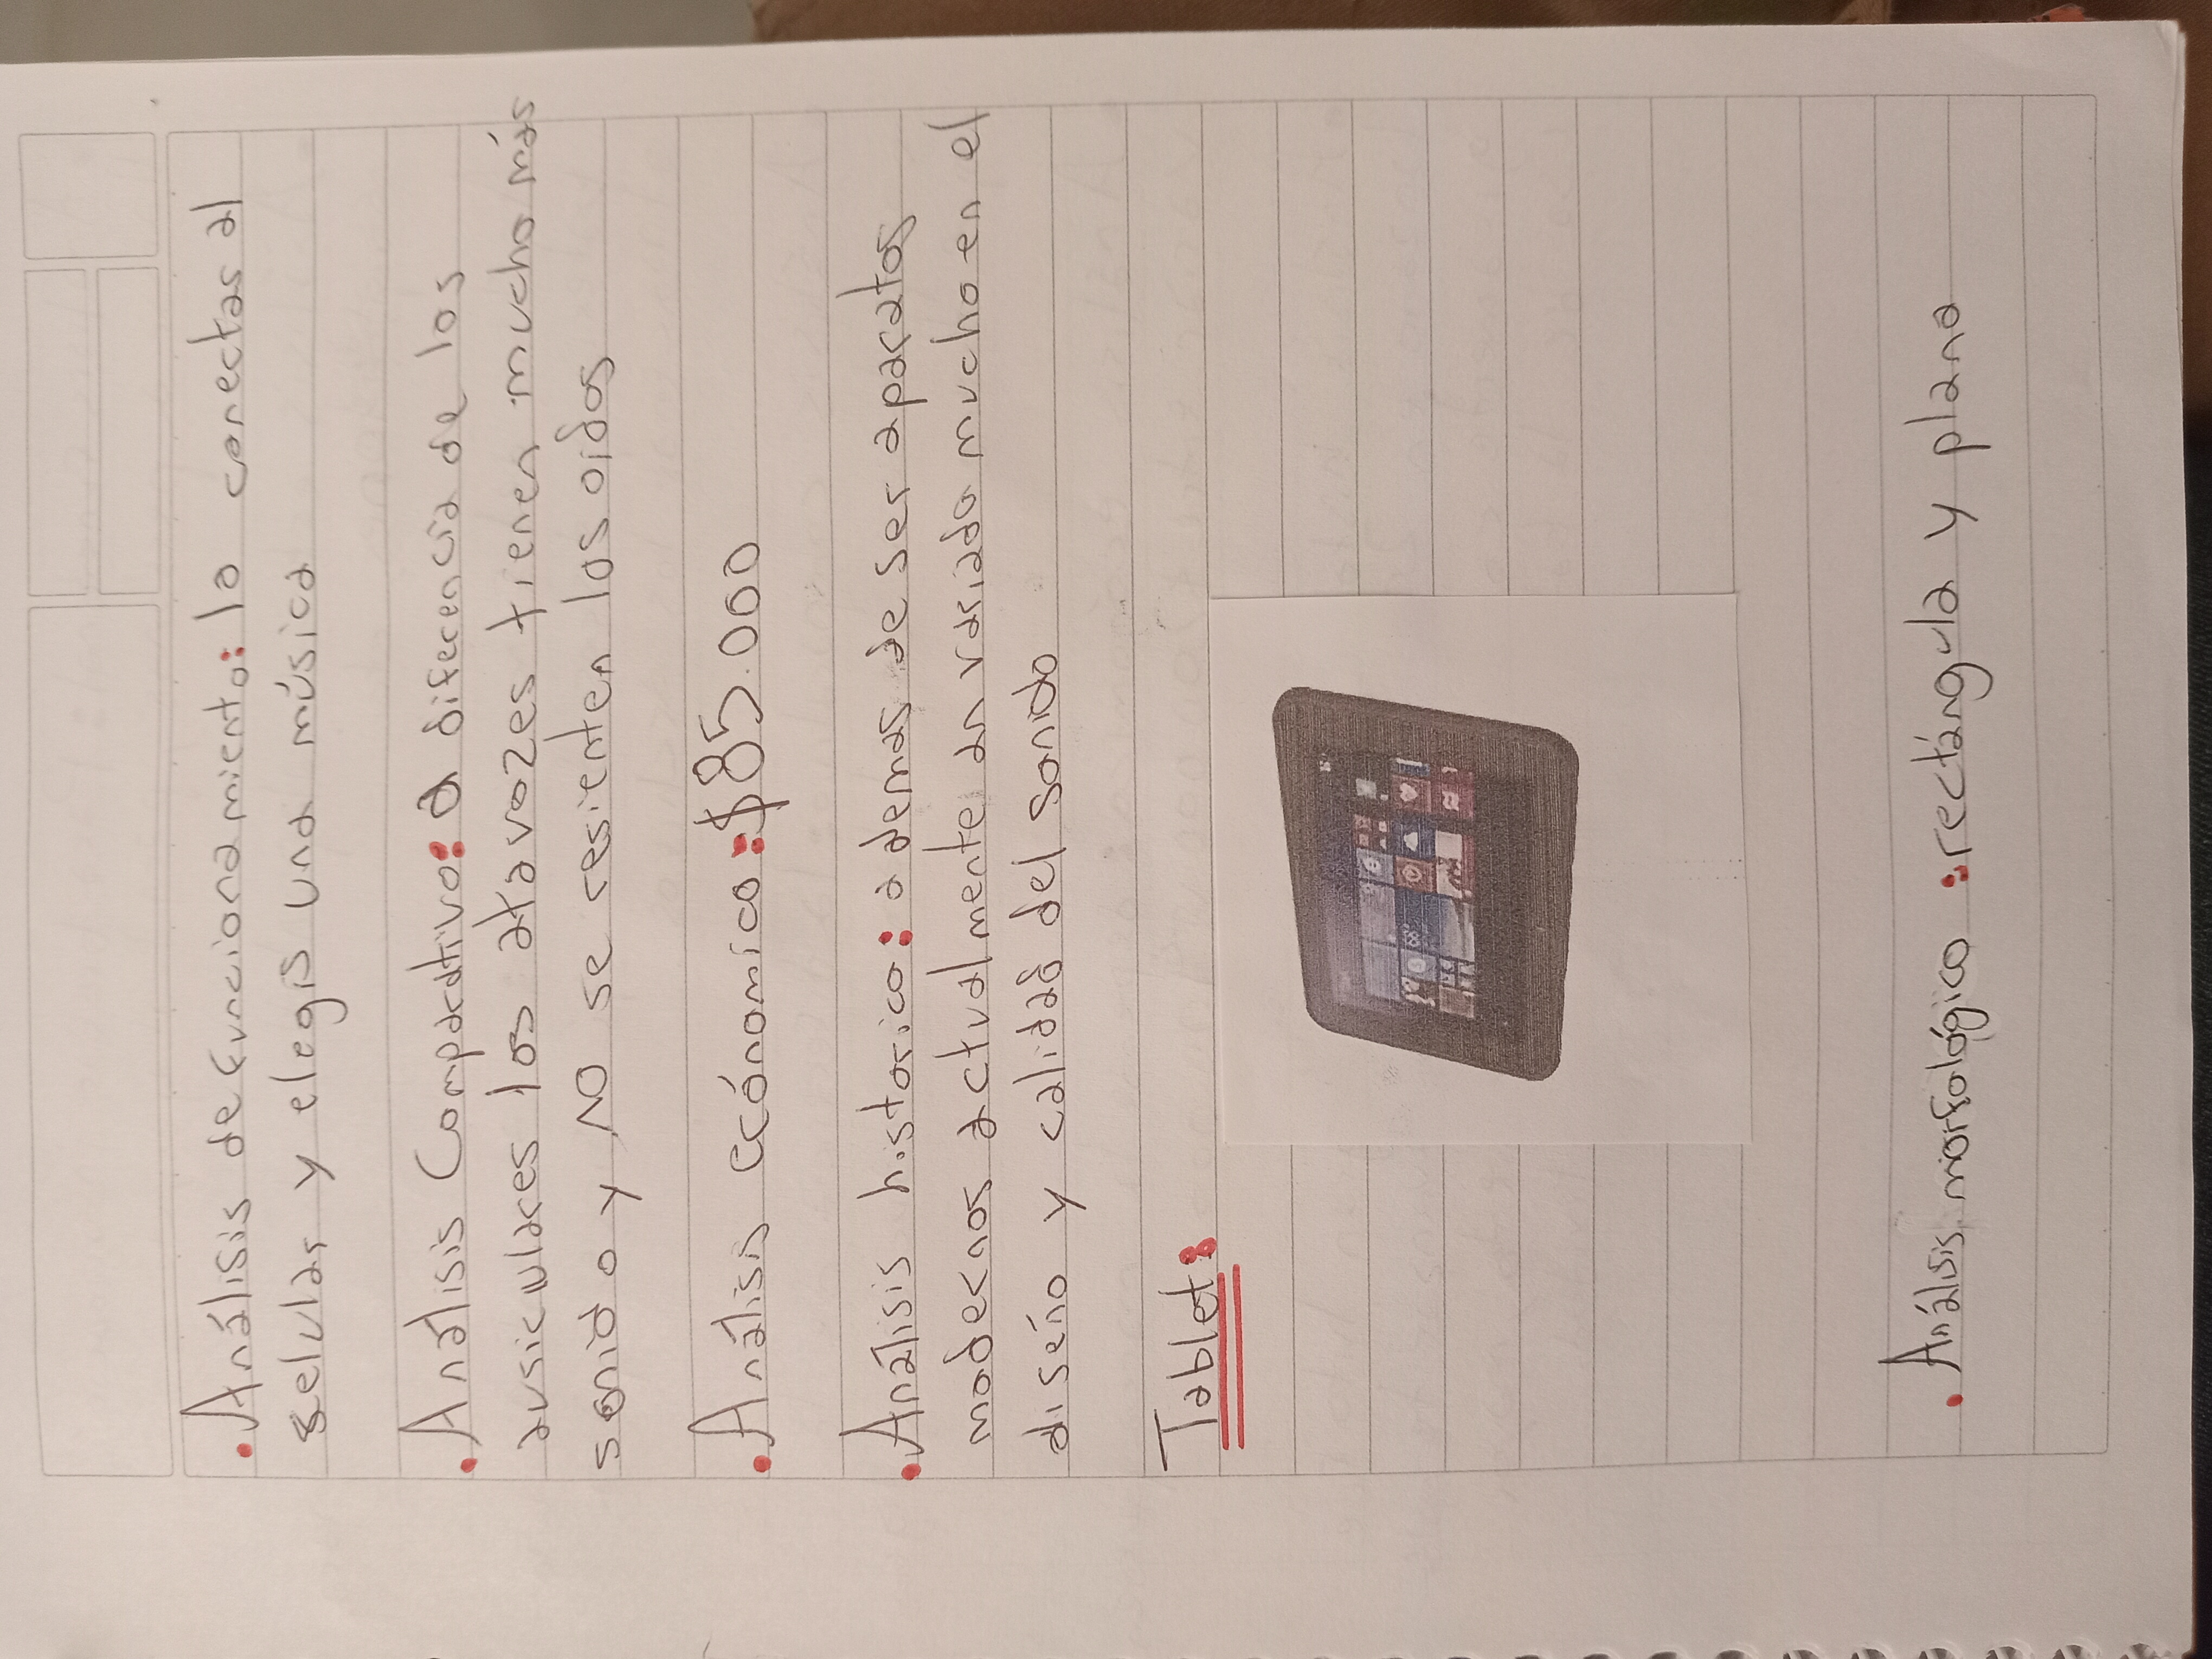 . Análisis de funcionamiento: lo conectas al
selular y elegís una música
. Análisis Comparativo: a diferencia de los
ausiculares los altavozes tienen mucho más
sonido y NO se resienten los oidos
. Análisis ecónomico: $85.000
. Análisis historico: a demas de ser aparatos
modernos actualmente an variado mucho en el
diseño y calidad del sonido
Tablet:
. Análisis morfológico: rectángula y plana